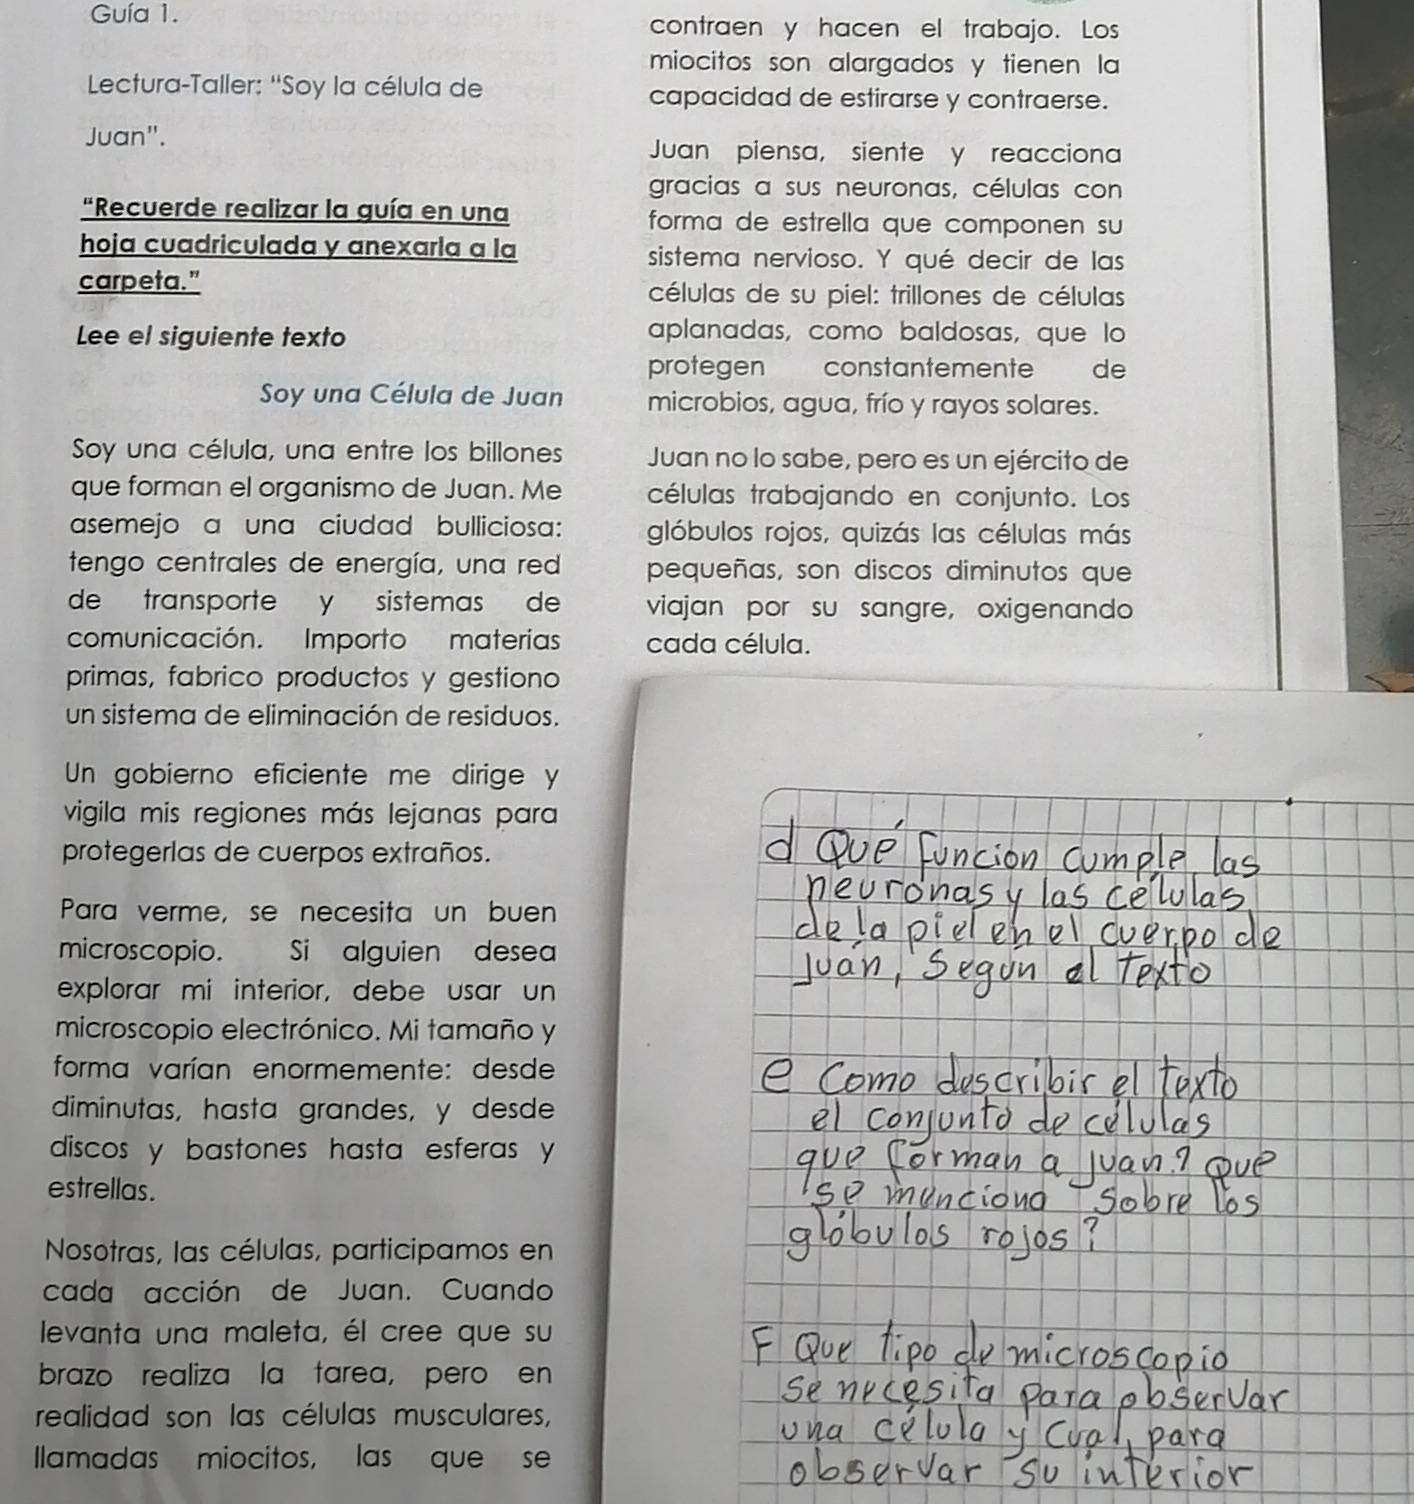 Guía 1.
Lectura-Taller: "Soy la célula de
Juan".
"Recuerde realizar la guía en una
hoja cuadriculada y anexarla a la
carpeta."
Lee el siguiente texto
Soy una Célula de Juan
Soy una célula, una entre los billones
que forman el organismo de Juan. Me
asemejo a una ciudad bulliciosa:
tengo centrales de energía, una red
de transporte y sistemas de
comunicación. Importo materias
primas, fabrico productos y gestiono
un sistema de eliminación de residuos.
Un gobierno eficiente me dirige y
vigila mis regiones más lejanas para
protegerlas de cuerpos extraños.
Para verme, se necesita un buen
microscopio. Si alguien desea
explorar mi interior, debe usar un
microscopio electrónico. Mi tamaño y
forma varían enormemente: desde
diminutas, hasta grandes, y desde
discos y bastones hasta esferas y
estrellas.
Nosotras, las células, participamos en
cada acción de Juan. Cuando
levanta una maleta, él cree que su
brazo realiza la tarea, pero en
realidad son las células musculares,
llamadas miocitos, las que se
contraen y hacen el trabajo. Los
miocitos son alargados y tienen la
capacidad de estirarse y contraerse.
Juan piensa, siente y reacciona
gracias a sus neuronas, células con
forma de estrella que componen su
sistema nervioso. Y qué decir de las
células de su piel: trillones de células
aplanadas, como baldosas, que lo
protegen constantemente de
microbios, agua, frío y rayos solares.
Juan no lo sabe, pero es un ejército de
células trabajando en conjunto. Los
glóbulos rojos, quizás las células más
pequeñas, son discos diminutos que
viajan por su sangre, oxigenando
cada célula.
d Qué función cumple las
neuronas y las células
de la piel en el cuerpo de
Juan, Segun el Texto
e Como describir el texto
el conjunto de células
que forman a Juan? Que
se menciona sobre los
glóbulos rojos?
F Que tipo de microscopio
se necesita para observar
una célula y Cual, para
observar su interior